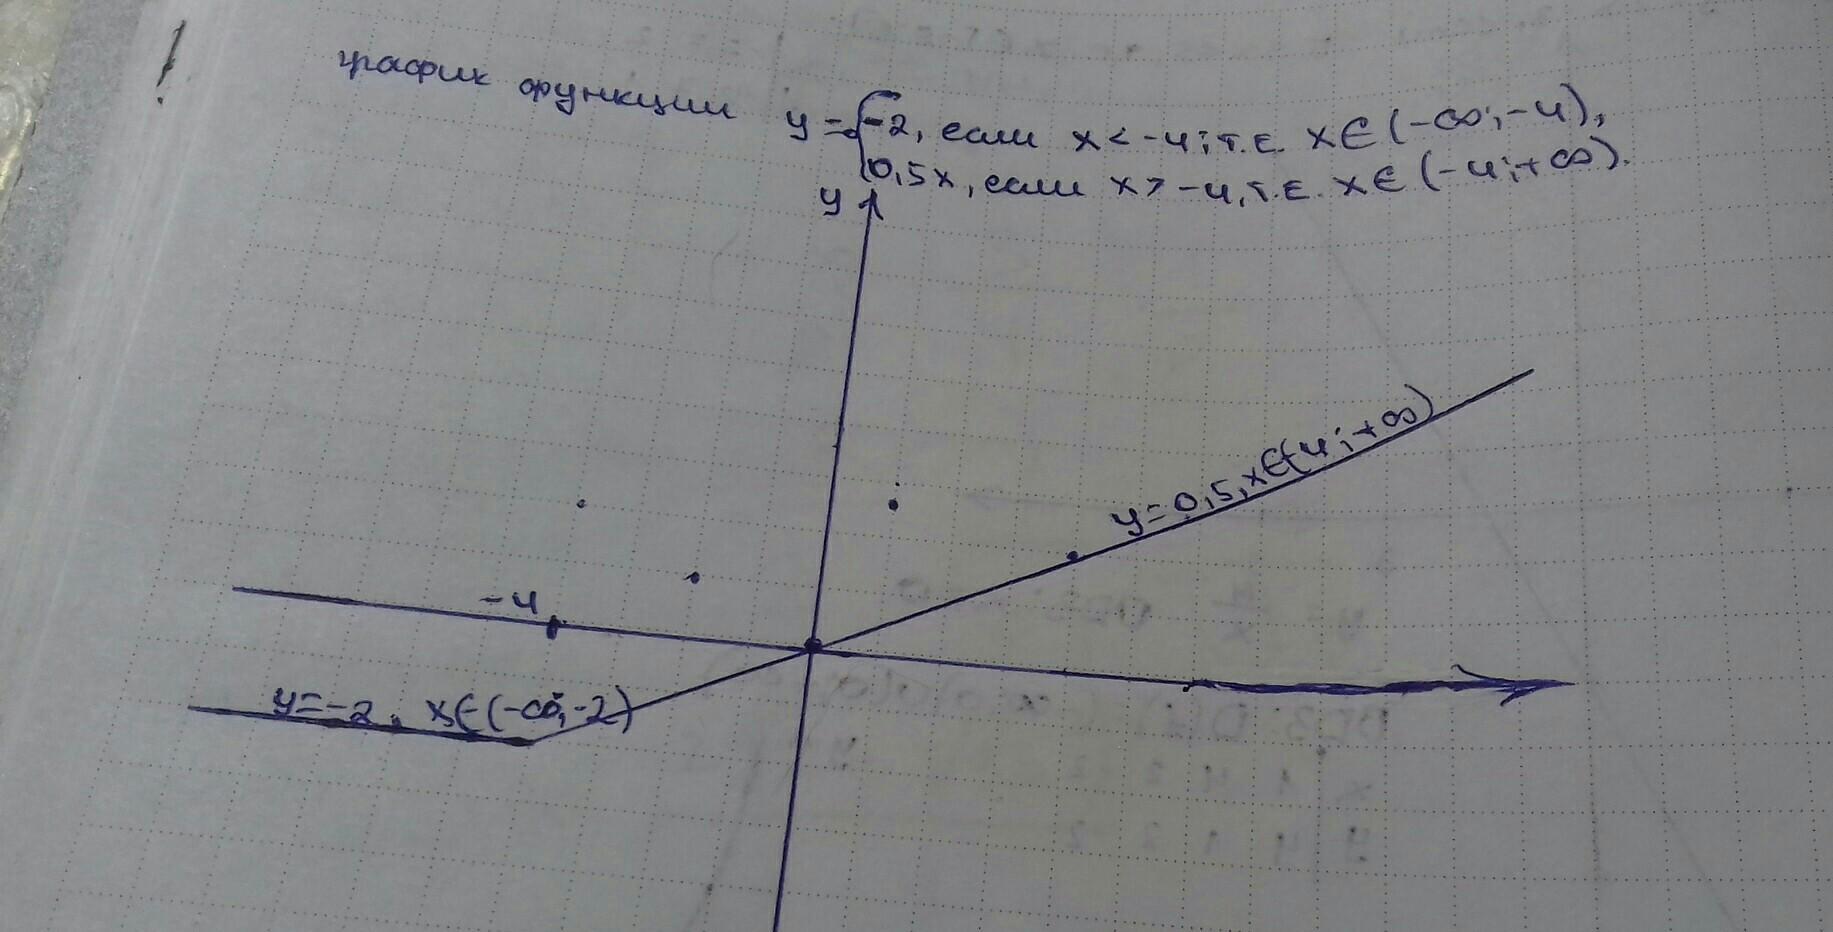 !
график функции y = { -2, если x < -4; т.е. x ∈ (-∞; -4),
0,5x, если x > -4, т.е. x ∈ (-4; +∞).
y
y = 0,5, x ∈ (-4; +∞)
-4
y = -2, x ∈ (-∞; -2)